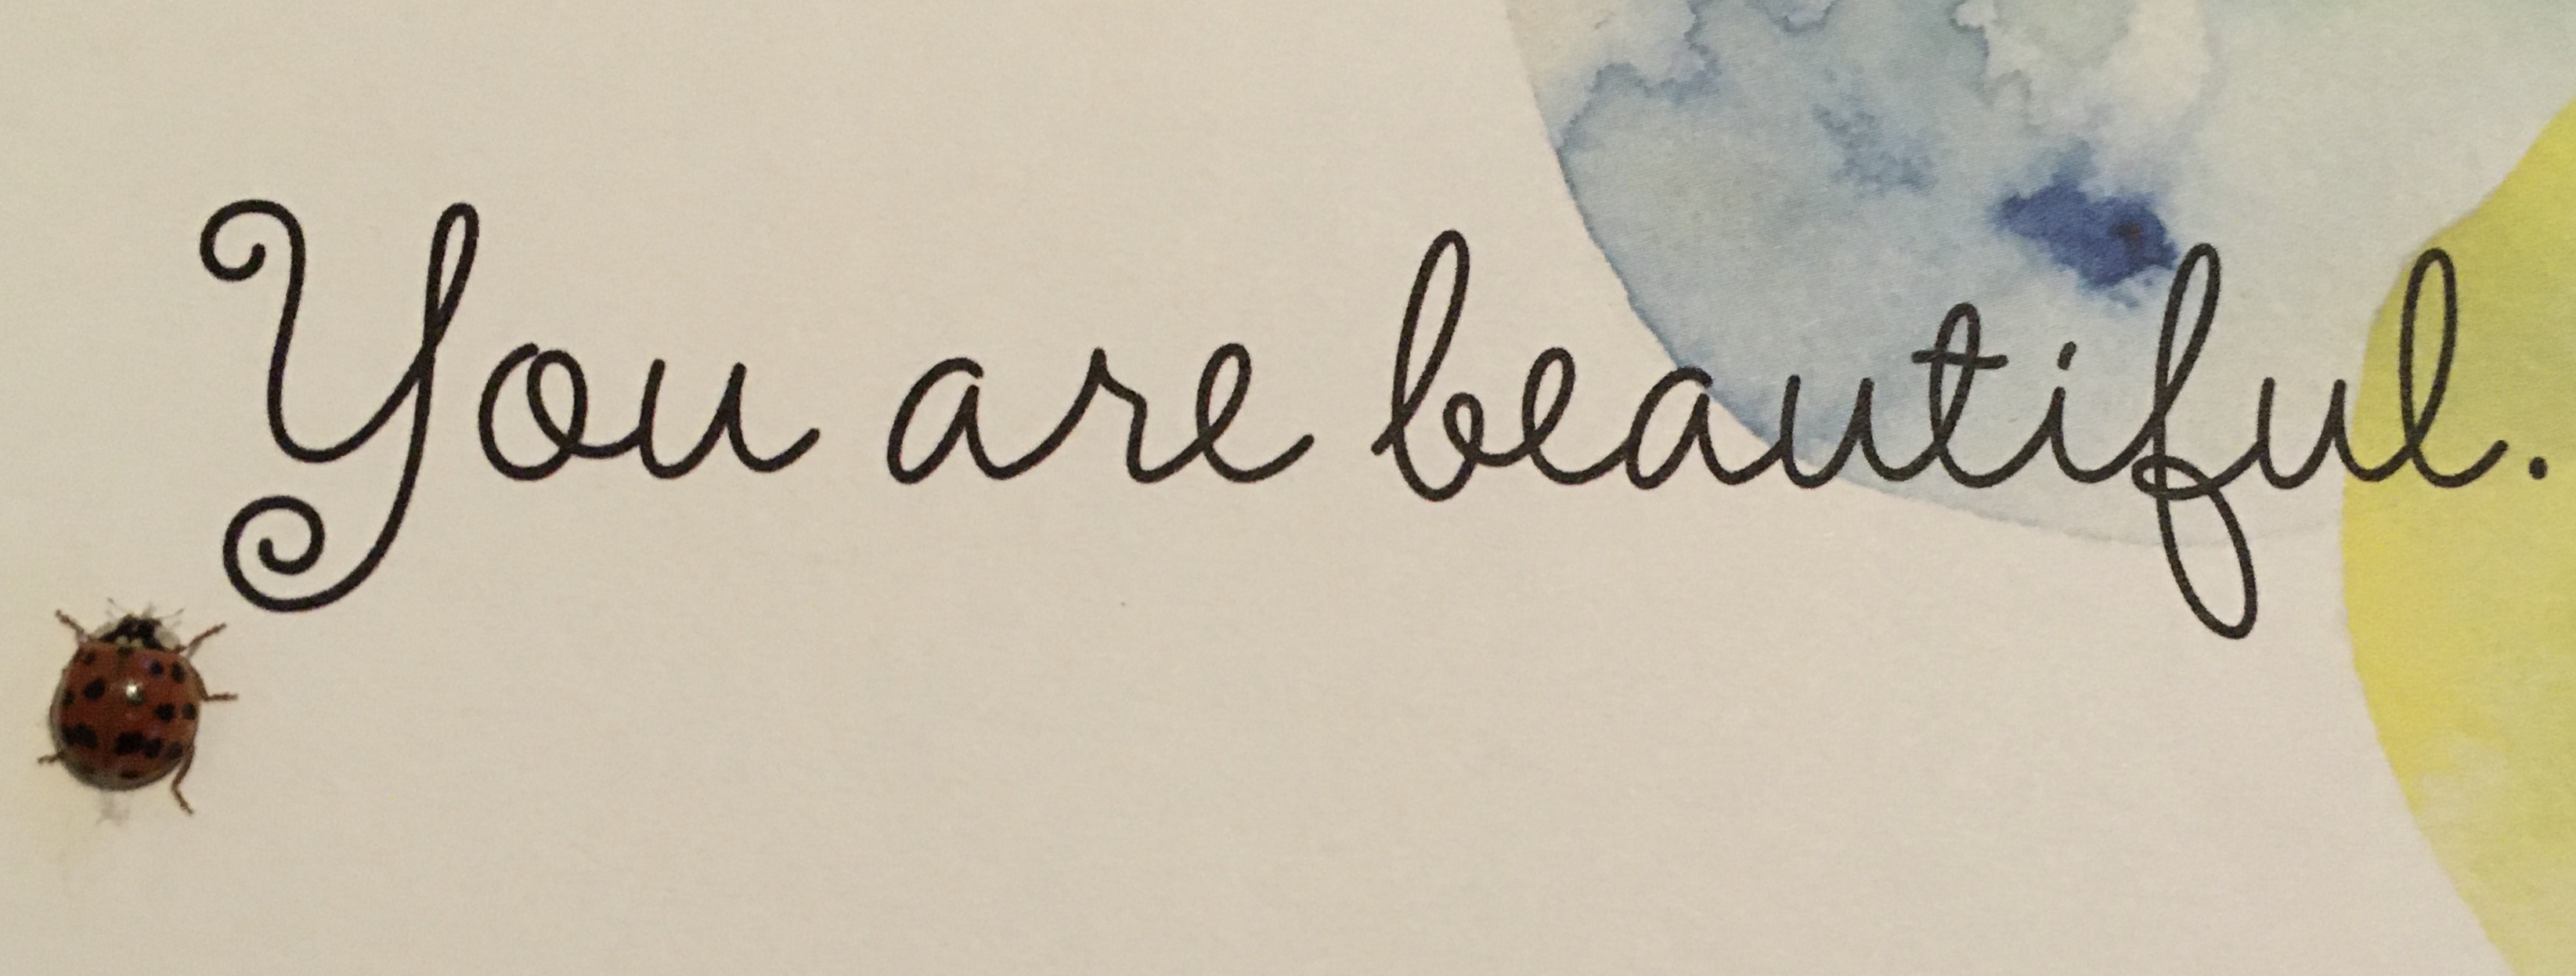 You are beautiful.